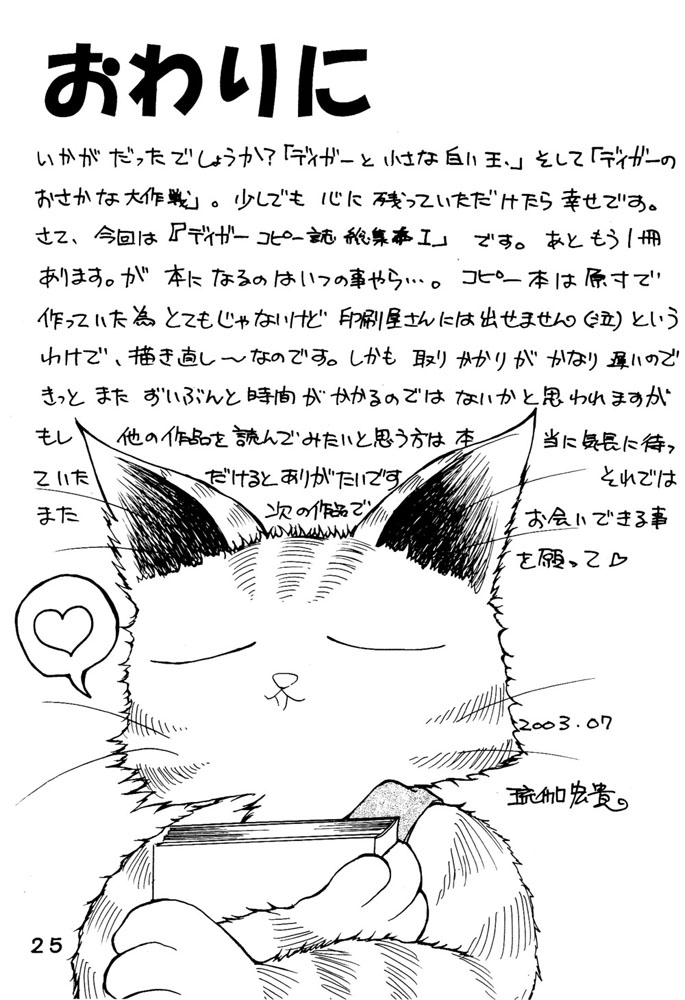 おわりに
いかが だったでしょうか?「ディガーと 小さな 白い 玉、」そして「ディガーの
おさかな 大作戦」。少しでも 心に 残っていただけたら 幸せです。
さて、今回は『ディガー コピー誌 総集本 I』です。あともう1冊
あります。が 本に なるの はいつの事やら…。コピー本は 原寸で
作っていた為 とてもじゃないけど 印刷屋さんには出せません(泣)という
わけで、描き直し〜なのです。しかも 取り かかりが かなり 遅いので
きっと また ずいぶんと 時間が かかるのでは ないかと 思われますが
もし 他の作品を読んでみたいと思う方は 本当に気長に待っ
ていた だけるとありがたいです それでは
また 次の作品で お会いできる事
を願って♡
2003.07
琉伽宏貴。
25